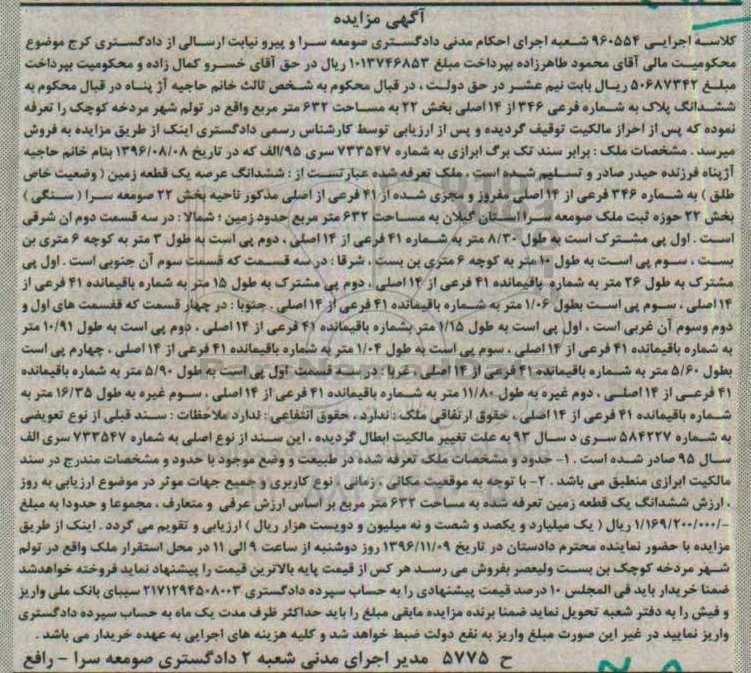 آگهی مزایده
کلاسه اجرایی ۹۶۰۵۵۴ شعبه اجرای احکام مدنی دادگستری صومعه سرا و پیرو نیابت ارسالی از دادگستری کرج موضوع
محکومیت مالی آقای محمود طاهرزاده بپرداخت مبلغ ۱۰۱۳۷۴۶۸۵۳ ریال در حق آقای خسرو کمال زاده و محکومیت بپرداخت
مبلغ ۵۰۶۸۷۳۴۲ ریال بابت نیم عشر در حق دولت ، در قبال محکوم به شخص ثالث خانم حاجیه آژ پناه در قبال محکوم به
ششدانگ پلاک به شماره فرعی ۳۴۶ از ۱۴ اصلی بخش ۲۲ به مساحت ۶۳۲ متر مربع واقع در تولم شهر مردخه کوچک را تعرفه
نموده که پس از احراز مالکیت توقیف گردیده و پس از ارزیابی توسط کارشناس رسمی دادگستری اینک از طریق مزایده به فروش
میرسد . مشخصات ملک : برابر سند تک برگ ابرازی به شماره ۷۳۳۵۴۷ سری ۹۵/الف که در تاریخ ۱۳۹۶/۰۸/۰۸ بنام خانم حاجیه
آژپناه فرزنده حیدر صادر و تسلیم شده است ، ملک تعرفه شده عبارتست از : ششدانگ عرصه یک قطعه زمین ( وضعیت خاص
طلق ) به شماره ۳۴۶ فرعی از ۱۴ اصلی مفروز و مجزی شده از ۴۱ فرعی از اصلی مذکور ناحیه بخش ۲۲ صومعه سرا ( سنگی )
بخش ۲۲ حوزه ثبت ملک صومعه سرا استان گیلان به مساحت ۶۳۲ متر مربع حدود زمین ؛ شمالا : در سه قسمت دوم ان شرقی
است . اول پی مشترک است به طول ۸/۳۰ متر به شماره ۴۱ فرعی از ۱۴ اصلی ، دوم پی است به طول ۳ متر به کوچه ۶ متری بن
بست ، سوم پی است به طول ۱۰ متر به کوچه ۶ متری بن بست ، شرقا : در سه قسمت که قسمت سوم آن جنوبی است . اول پی
مشترک به طول ۲۶ متر به شماره باقیمانده ۴۱ فرعی از ۱۴ اصلی ، دوم پی مشترک به طول ۱۵ متر به شماره باقیمانده ۴۱ فرعی از
۱۴ اصلی ، سوم پی است بطول ۱/۰۶ متر به شماره باقیمانده ۴۱ فرعی از ۱۴ اصلی . جنوبا : در چهار قسمت که قفسمت های اول و
دوم وسوم آن غربی است ، اول پی است به طول ۱/۱۵ متر بشماره باقیمانده ۴۱ فرعی از ۱۴ اصلی ، دوم پی است به طول ۱۰/۹۱ متر
به شماره باقیمانده ۴۱ فرعی از ۱۴ اصلی ، سوم پی است به طول ۱/۰۴ متر به شماره باقیمانده ۴۱ فرعی از ۱۴ اصلی ، چهارم پی است
بطول ۵/۶۰ متر به شماره باقیمانده ۴۱ فرعی از ۱۴ اصلی ، غربا : در سه قسمت اول پی است به طول ۵/۹۰ متر به شماره باقیمانده
۴۱ فرعی از ۱۴ اصلی ، دوم غیره به طول ۱۱/۸۰ متر به شماره باقیمانده ۴۱ فرعی از ۱۴ اصلی ، سوم غیره به طول ۱۶/۳۵ متر به
شماره باقیمانده ۴۱ فرعی از ۱۴ اصلی ، حقوق ارتفاقی ملک : ندارد ، حقوق انتفاعی : ندارد ملاحظات : سند قبلی از نوع تعویضی
به شماره ۵۸۴۲۲۷ سری د سال ۹۳ به علت تغییر مالکیت ابطال گردیده ، این سند از نوع اصلی به شماره ۷۳۳۵۴۷ سری الف
سال ۹۵ صادر شده است . ۱- حدود و مشخصات ملک تعرفه شده در طبیعت و وضع موجود با حدود و مشخصات مندرج در سند
مالکیت ابرازی منطبق می باشد . ۲- با توجه به موقعیت مکانی ، زمانی ، نوع کاربری و جمیع جهات موثر در موضوع ارزیابی به روز
، ارزش ششدانگ یک قطعه زمین تعرفه شده به مساحت ۶۳۲ متر مربع بر اساس ارزش عرفی و متعارف ، مجموعا و حدودا به مبلغ
-/۱/۱۶۹/۲۰۰/۰۰۰ ریال ( یک میلیارد و یکصد و شصت و نه میلیون و دویست هزار ریال ) ارزیابی و تقویم می گردد . اینک از طریق
مزایده با حضور نماینده محترم دادستان در تاریخ ۱۳۹۶/۱۱/۰۹ روز دوشنبه از ساعت ۹ الی ۱۱ در محل استقرار ملک واقع در تولم
شهر مردخه کوچک بن بست ولیعصر بفروش می رسد هر کس از قیمت پایه بالاترین قیمت را پیشنهاد نماید فروخته خواهدشد
ضمنا خریدار باید فی المجلس ۱۰ درصد قیمت پیشنهادی را به حساب سپرده دادگستری ۲۱۷۱۲۹۴۵۰۸۰۰۳ سیبای بانک ملی واریز
و فیش را به دفتر شعبه تحویل نماید ضمنا برنده مزایده مابقی مبلغ را باید حداکثر ظرف مدت یک ماه به حساب سپرده دادگستری
واریز نمایید در غیر این صورت مبلغ واریز به نفع دولت ضبط خواهد شد و کلیه هزینه های اجرایی به عهده خریدار می باشد .
ح ۵۷۷۵ مدیر اجرای مدنی شعبه ۲ دادگستری صومعه سرا - رافع